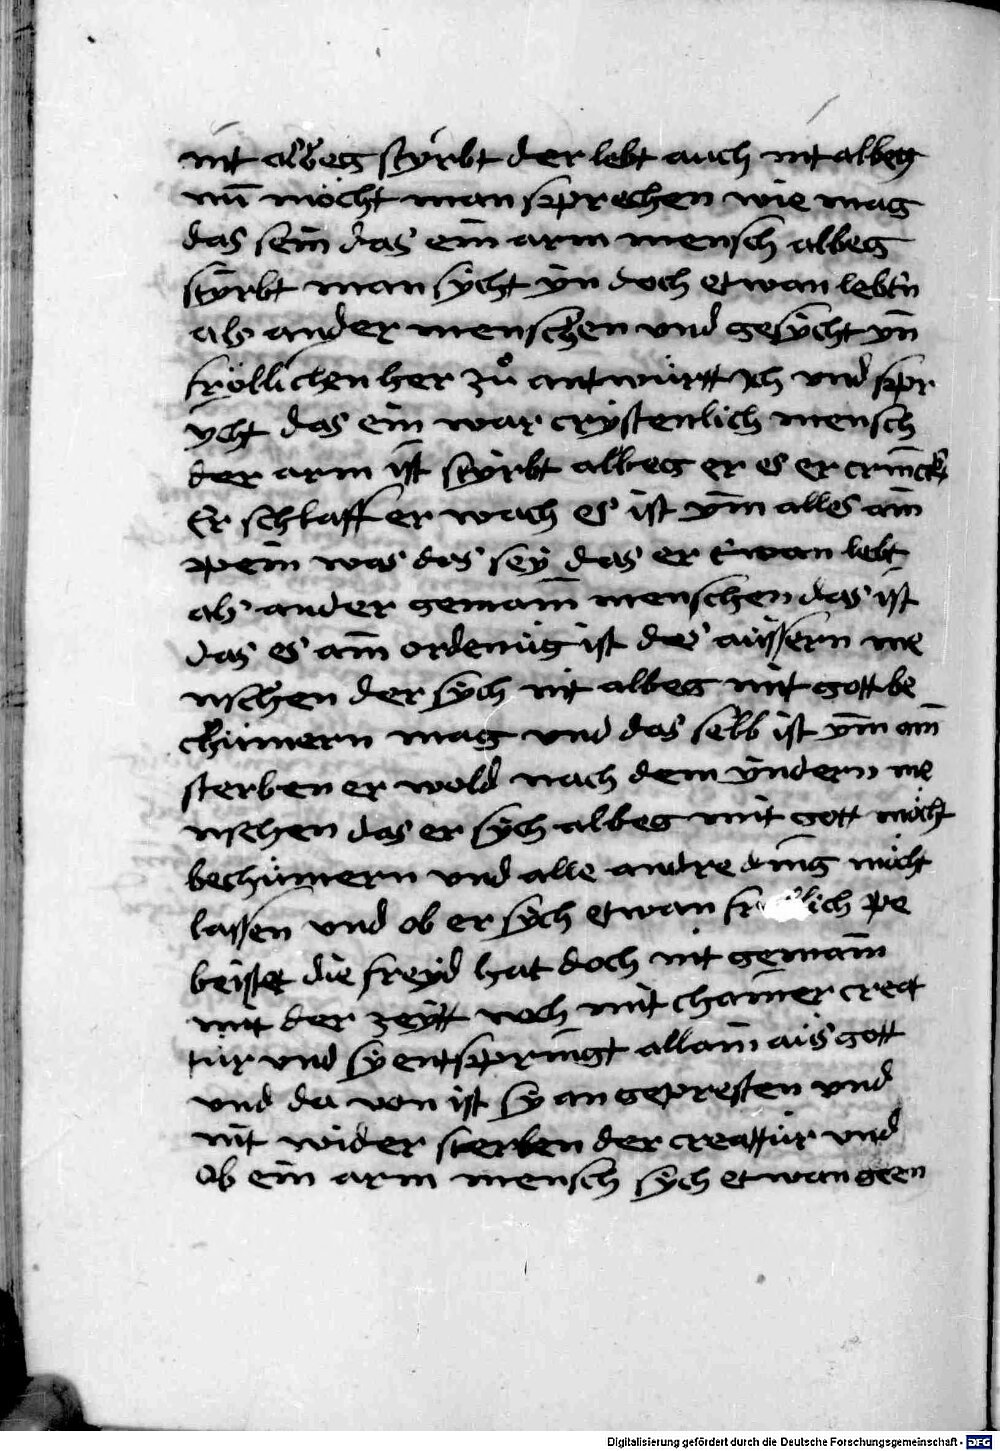 nit albeg styrbt der lebt auch nit albeg
nu̅ möcht man sprechen wie mag
das sein das ein arm mensch albeg
styrbt man sycht yn doch etwan lebt̅n
als ander menschen und gesycht yn
fröllichen her zů antwürtt ych und spr
ycht das ein war crystenlich mensch
der arm ist styrbt albeg er es er trinck
Er schlaff er wach es ist ym alles ain
pein was das sey das er etwan lebt
als ander gemain menschen das ist
das es ain ordenüg ist des aüssern me
nschen der sych nit albeg mit gott be
chümern mag und das selb ist ym ain
sterben er wold nach dem yndern me
nschen das er sych albeg mit gott möcht
bechümern und alle andre ding möcht
lassen und ob er sych etwan frölich pe
beiset die freyd hat doch nit gemain
mit der zeytt noch mit chainer creat
tür und sy entspringt allain aüs gott
und da von ist sy an gepresten und
nit wider sterben der creattür und
ob ein arm mensch sych etwan geen
Digitalisierung gefördert durch die Deutsche Forschungsgemeinschaft - DFG